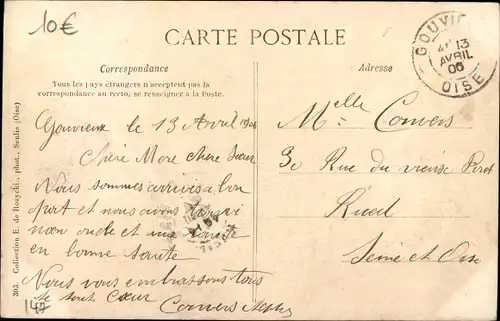 10€
CARTE POSTALE
Correspondance
Tous les pays étrangers n'acceptent pas la
correspondance au recto, se renseigner à la Poste.
Adresse
GOUVI
13
AVRIL
06
OISE
Gouvieux le 13 Avril 1906
Chère Mere chere Sœur
Nous sommes arrivés a bon
port et nous avons trouvé
mon oncle et ma tante
en bonne santé
Nous vous embrassons tous
de tout cœur
Convers
Melle Convers
30 Rue du vieux Pont
Rueil
Seine et Oise
303. Collection E. de Rozycki, phot., Senlis (Oise)
147